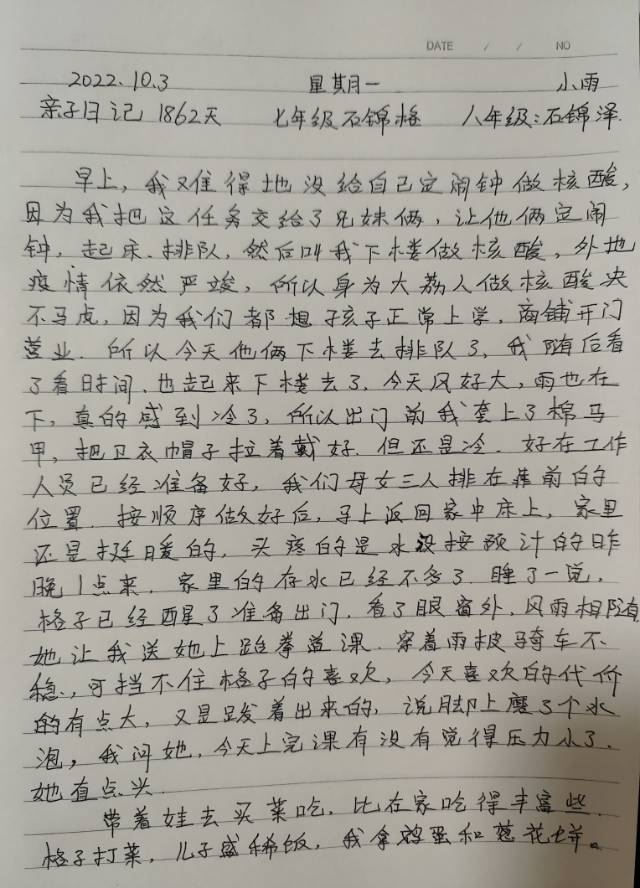 DATE / / NO
2022.10.3 星期一 小雨
亲子日记 1862天 七年级石锦格 八年级:石锦泽
早上,我难得地没给自己定闹钟做核酸,
因为我把这任务交给了兄妹俩,让他俩定闹
钟,起床.排队,然后叫我下楼做核酸,外地
疫情依然严竣,所以身为大荔人做核酸决
不马虎,因为我们都想孩子正常上学,商铺开门
营业.所以今天他俩下楼去排队了,我随后看
了看时间,也起来下楼去了,今天风好大,雨也在
下,真的感到冷了,所以出门前我套上了棉马
甲,把卫衣帽子拉着戴好.但还是冷.好在工作
人员已经准备好,我们母女三人排在靠前的
位置.按顺序做好后,马上返回家中床上,家里
还是挺暖的,头疼的是水没按预计的昨
晚1点来.家里的存水已经不多了.睡了一觉,
格子已经醒了准备出门,看了眼窗外,风雨相随
她让我送她上跆拳道课.穿着雨披骑车不
稳,可挡不住格子的喜欢,今天喜欢的代价
的有点大,又是跛着出来的,说脚上磨了个水
泡,我问她,今天上完课有没有觉得压力小了,
她直点头.
带着娃去买菜吃,比在家吃得丰富些.
格子打菜,儿子盛稀饭,我拿鸡蛋和葱花饼。